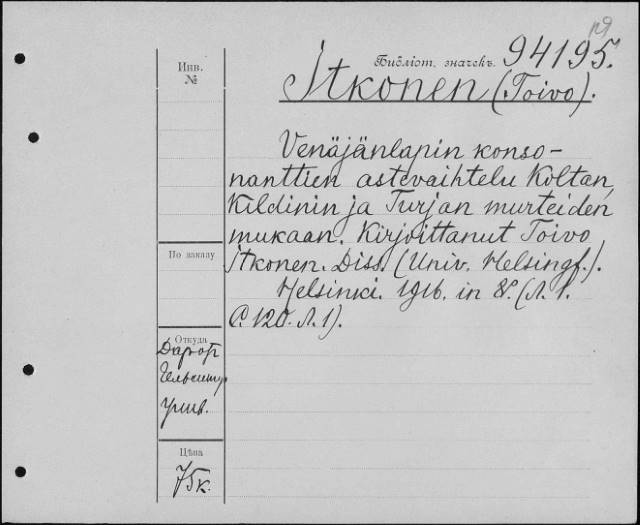 Библіот. значекъ. 94195.
Инв.
№
Itkonen (Toivo).
Venäjänlapin konso-
nanttien astevaihtelu Koltan,
Kildinin ja Turjan murteiden
mukaan. Kirjoittanut Toivo
Itkonen. Diss. (Univ. Helsingf.).
Helsinki. 1916. in 8°. (Л. 1.
С. 120. Л. 1).
По заказу
Откуда
Даръ отъ
Гельсингф
Унив.
Цѣна
75 к.